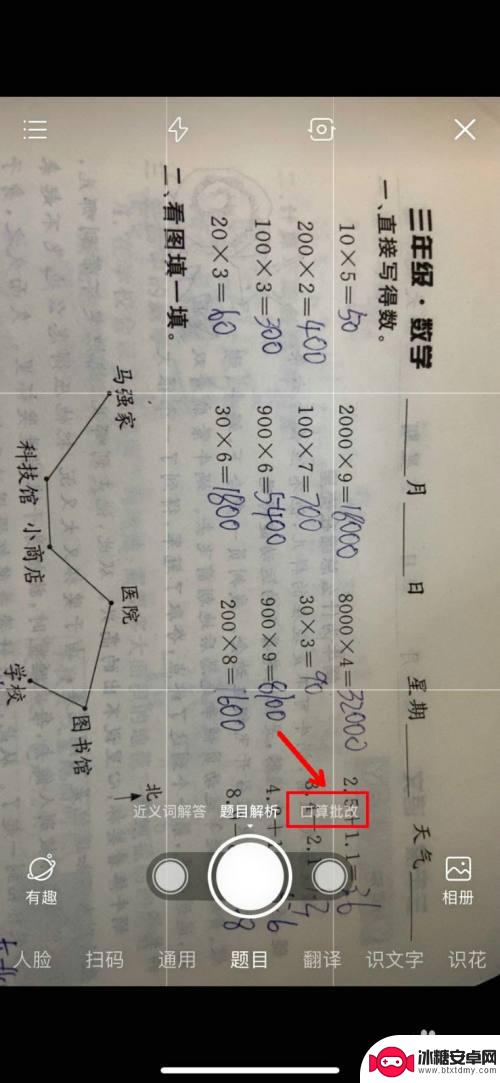 三年级·数学
月 日 星期 天气
一、直接写得数。
10×5=50 2000×9=18000 8000×4=32000 2.5+1.1=3.6
200×2=400 100×7=700 30×3=90
100×3=300 900×6=5400 900×9=8100
20×3=60 30×6=1800 200×8=1600
二、看图填一填。
马强家
科技馆
小商店
医院
图书馆
学校
北
近义词解答 题目解析 口算批改
有趣
相册
人脸 扫码 通用 题目 翻译 识文字 识花
冰糖安卓网
www.btxtdmy.com